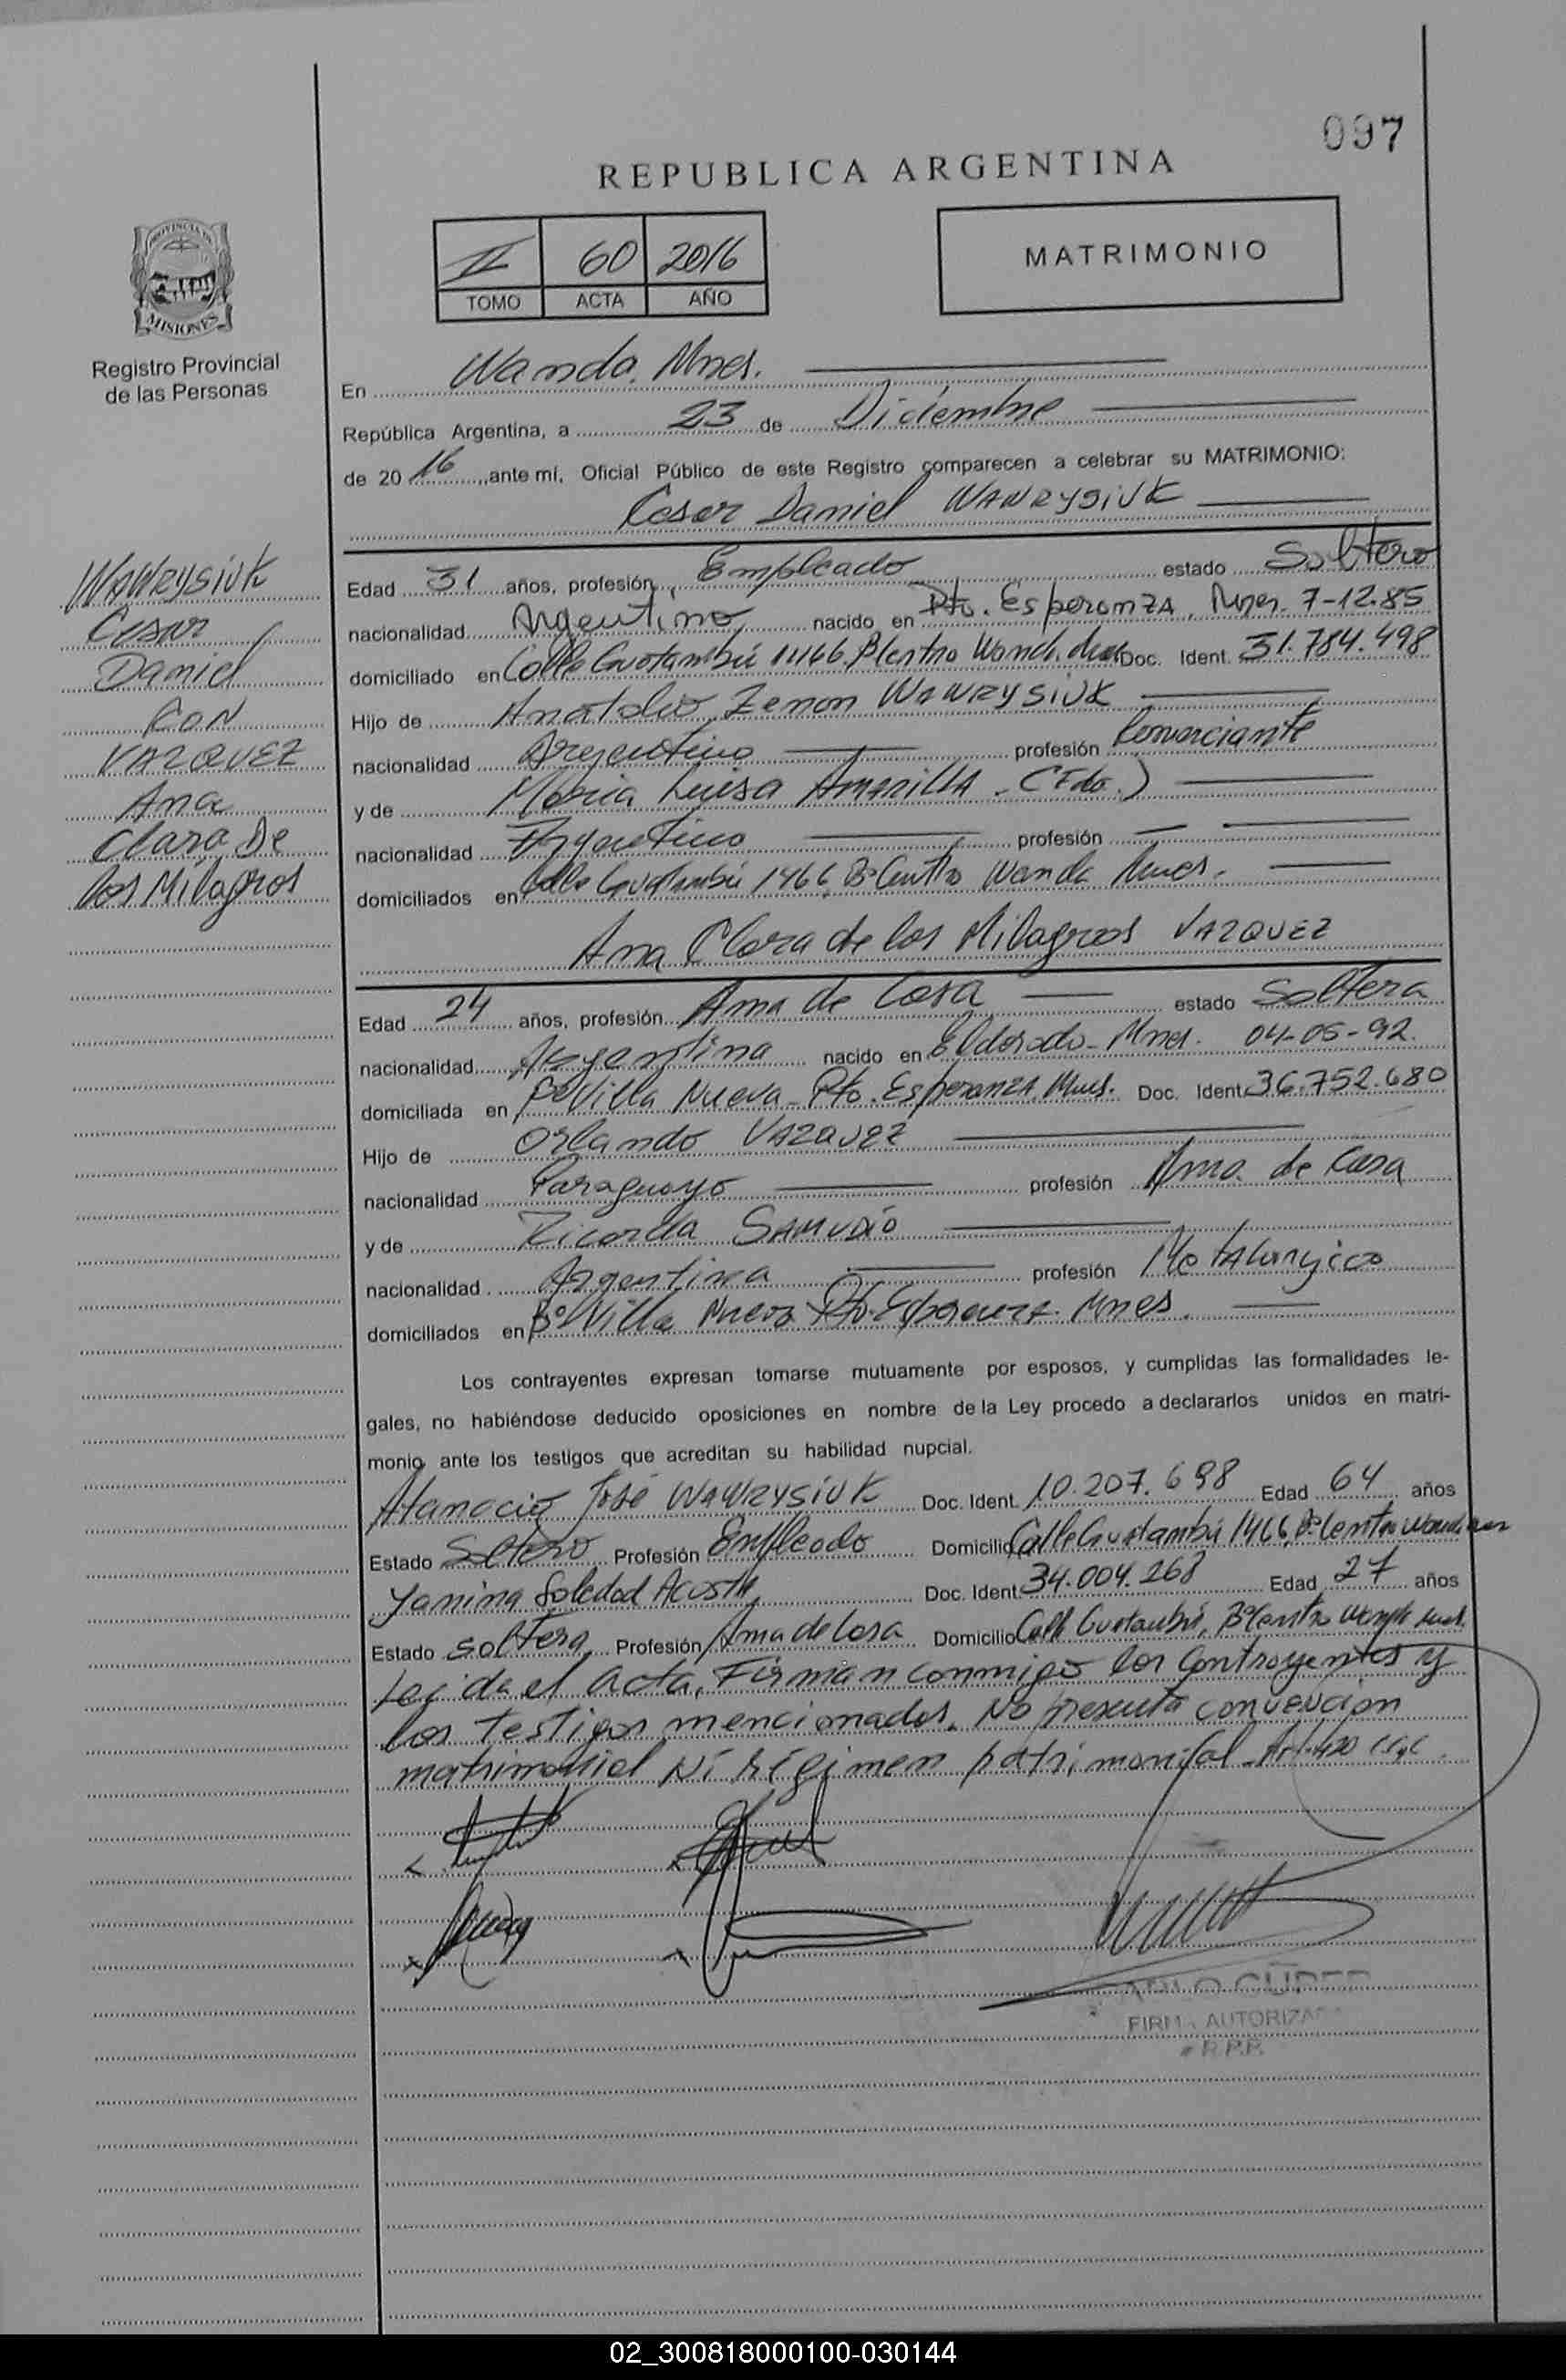 097
REPUBLICA ARGENTINA
PROVINCIA DE
MISIONES
Registro Provincial
de las Personas
II 60 2016
TOMO ACTA AÑO
MATRIMONIO
En Wanda. Mnes.
República Argentina, a 23 de Diciembre
de 20 16 ,ante mí, Oficial Público de este Registro comparecen a celebrar su MATRIMONIO:
Cesar Daniel WAWRYSIUK
WAWRYSIUK
Cesar
Daniel
CON
VAZQUEZ
Ana
Clara De
los Milagros
Edad 31 años, profesión, Empleado estado Soltero
nacionalidad Argentino nacido en Pto. Esperanza, Mnes. 7-12.85
domiciliado en Calle Guatambú 1466 B° Centro Wanda. Doc. Ident. 31.784.498
Hijo de Anatolio Zenon WAWRYSIUK
nacionalidad Argentino profesión Comerciante
y de Maria Luisa AMARILLA - (Fdo.)
nacionalidad Argentino profesión —
domiciliados en Calle Guatambú 1466 B° Centro Wanda Mnes.
Ana Clara de los Milagros VAZQUEZ
Edad 24 años, profesión Ama de Casa estado Soltera
nacionalidad Argentina nacido en Eldorado - Mnes. 04-05-92.
domiciliada en B° Villa Nueva - Pto. Esperanza. Mnes. Doc. Ident. 36.752.680
Hijo de Orlando VAZQUEZ
nacionalidad Paraguayo profesión Ama. de Casa
y de Ricarda SAMUDIO
nacionalidad Argentina profesión Metalurgico
domiciliados en B° Villa Nueva Pto. Esperanza. Mnes.
Los contrayentes expresan tomarse mutuamente por esposos, y cumplidas las formalidades le-
gales, no habiéndose deducido oposiciones en nombre de la Ley procedo a declararlos unidos en matri-
monio ante los testigos que acreditan su habilidad nupcial.
Atanacio José WAWRYSIUK Doc. Ident. 10.207.698 Edad 64 años
Estado Soltero Profesión Empleado Domicilio Calle Guatambú 1466, B° Centro Wanda
Yanina Soledad ACOSTA Doc. Ident. 34.004.268 Edad 27 años
Estado soltera Profesión Ama de Casa Domicilio Calle Guatambú, B° Centro Wanda Mnes.
Leida el acta, Firman conmigo los Contrayentes y
los testigos mencionados. No presenta convención
matrimonial Ni régimen patrimonial - Art. 420
FIRMA AUTORIZADA
R.P.P.
02_300818000100-030144